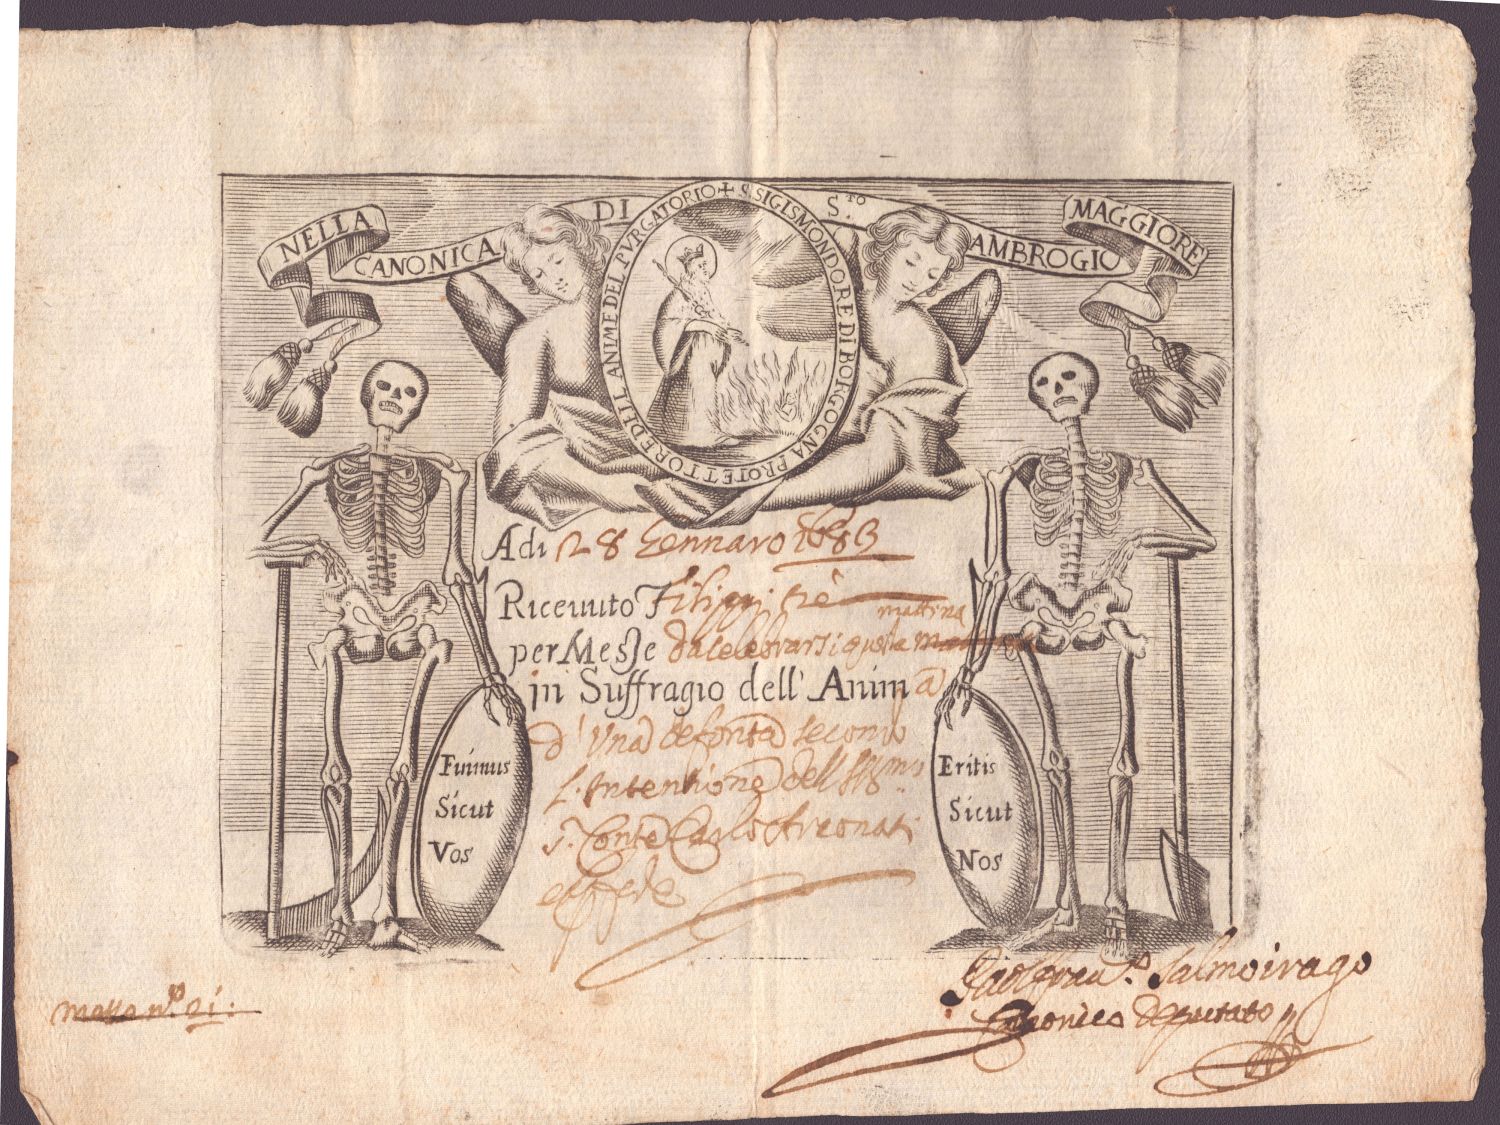 NELLA CANONICA DI S.TO AMBROGIO MAGGIORE
+ S. SIGISMONDO RE DI BORGOGNA PROTETTORE DELL ANIME DEL PVRGATORIO
Adi 28 Gennaro 1683
Riceuuto Filippi tre
mattina
per Messe da celebrarsi questa
in Suffragio dell' Anima
d' Una defonta secondo
l' Intentione dell Ill.mo
S. Conte Carlo Arconati
et fede
Fuimus
Sicut
Vos
Eritis
Sicut
Nos
Paolo Fran.co Salmoirago
Canonico Deputato
n.o 21.